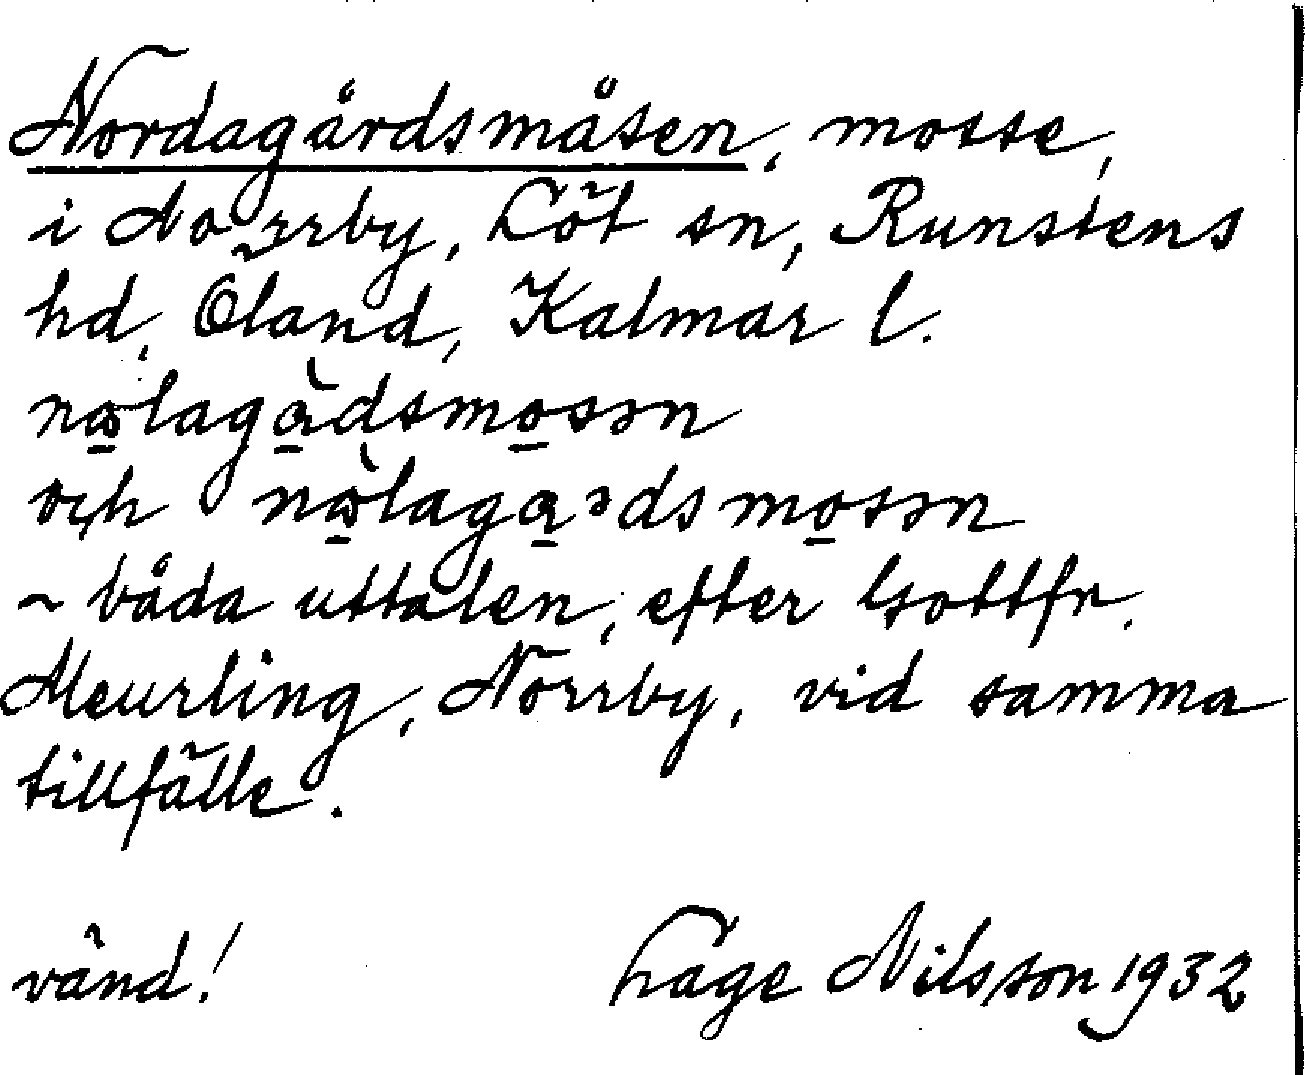 Nordagårdsmåsen, mosse,
i Norrby, Löt sn, Runstens
hd, Öland, Kalmar l.
och
~ båda uttalen, efter Gottfr.
Meurling, Norrby, vid samma
tillfälle.
vänd! Lage Nilsson 1932